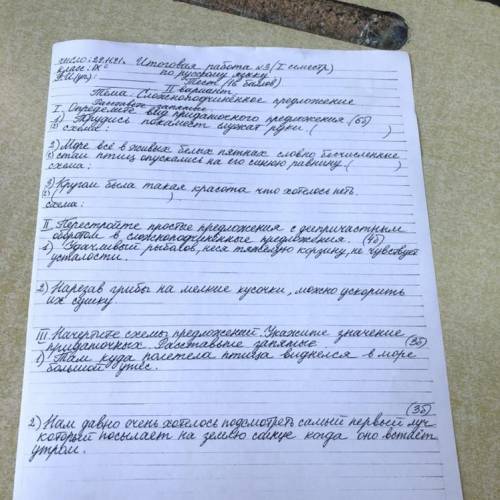 число: 29.11.21г. Итоговая работа №3 (I семестр)
класс: IX
Ф.И(уч): по русскому языку
Тест. (16 баллов)
II вариант
Тема: Сложноподчинённое предложение
Расставьте запятые
I. Определите вид придаточного предложения (6б)
1) Трудись покамест служат руки. ( )
схема:
2) Море всё в живых белых пятнах словно бесчисленные
стаи птиц опускались на его синюю равнину. ( )
схема:
3) Кругом была такая красота что хотелось петь
( )
схема:
II Перестройте простые предложения с деепричастным
оборотом в сложноподчинённые предложения. (4б)
1) Удачливый рыболов, неся тяжёлую корзину, не чувствует
усталости.
2) Нарезав грибы на мелкие кусочки, можно ускорить
их сушку.
III Начертите схемы предложений. Укажите значение
придаточных. Расставьте запятые (3б)
1) Там куда полетела птица виднелся в море
большой утёс.
(3б)
2) Нам давно очень хотелось подсмотреть самый первый луч
который посылает на землю солнце когда оно встаёт
утром.